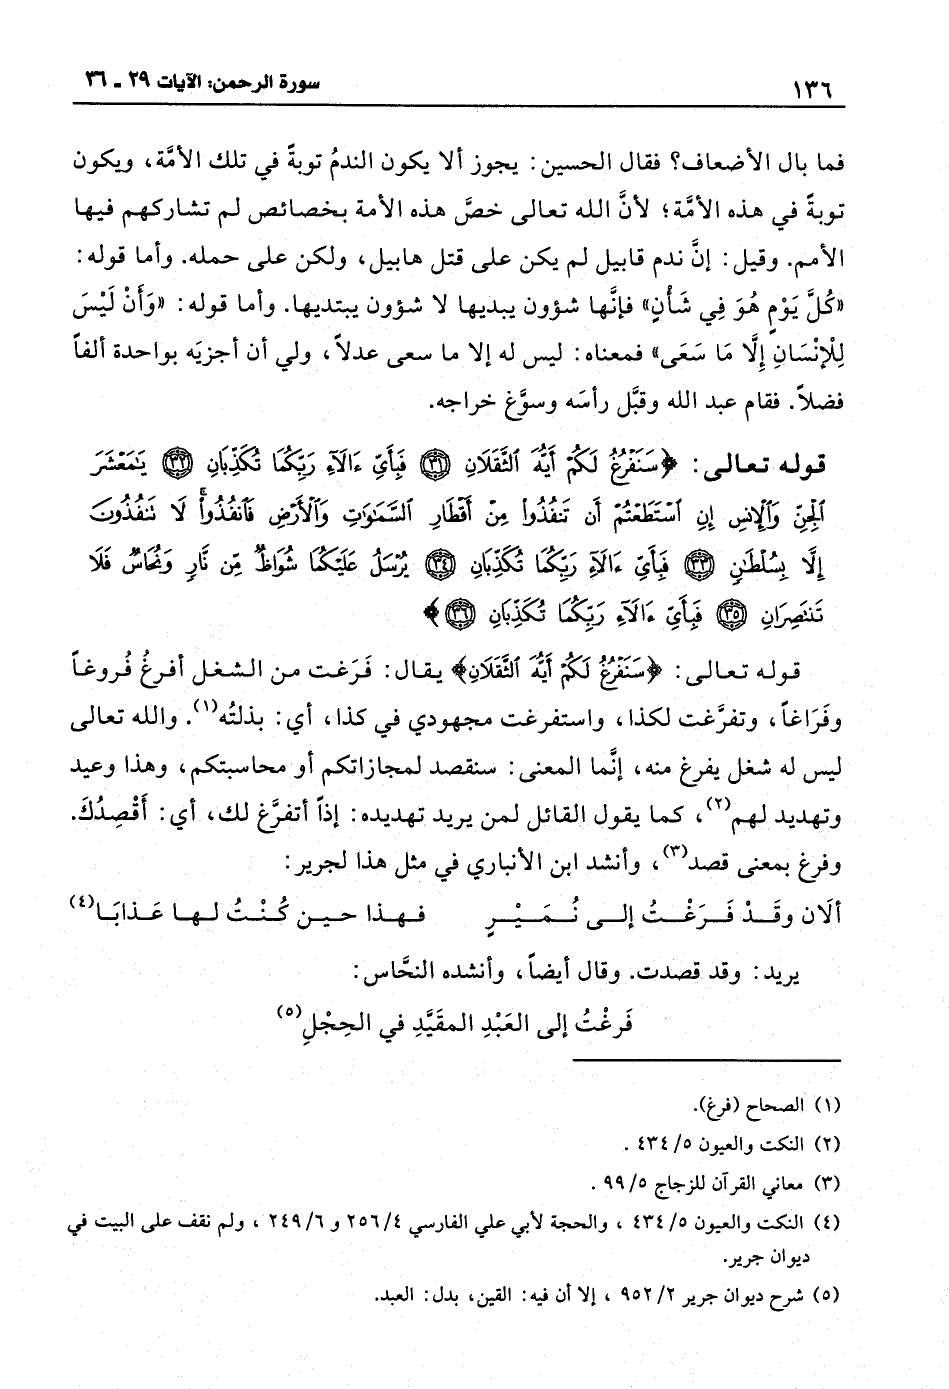 ١٣٦
سورة الرحمن: الآيات ٢٩ ـ ٣٦
فما بال الأضعاف؟ فقال الحسين: يجوز ألا يكون الندمُ توبةً في تلك الأمَّة، ويكون
توبةً في هذه الأمَّة؛ لأنَّ الله تعالى خصَّ هذه الأمة بخصائص لم تشاركهم فيها
الأمم. وقيل: إنَّ ندم قابيل لم يكن على قتل هابيل، ولكن على حمله. وأما قوله:
«كُلَّ يَوْمٍ هُوَ فِي شَأْنٍ» فإنَّها شؤون يبديها لا شؤون يبتديها. وأما قوله: «وَأَنْ لَيْسَ
لِلْإِنْسَانِ إِلَّا مَا سَعَى» فمعناه: ليس له إلا ما سعى عدلاً، ولي أن أجزيَه بواحدة ألفاً
فضلاً. فقام عبد الله وقبَّل رأسَه وسوَّغ خراجه.
قوله تعالى: ﴿سَنَفْرُغُ لَكُمْ أَيُّهَ ٱلثَّقَلَانِ ۝٣١ فَبِأَيِّ ءَالَآءِ رَبِّكُمَا تُكَذِّبَانِ ۝٣٢ يَٰمَعْشَرَ
ٱلْجِنِّ وَٱلْإِنسِ إِنِ ٱسْتَطَعْتُمْ أَن تَنفُذُوا۟ مِنْ أَقْطَارِ ٱلسَّمَٰوَٰتِ وَٱلْأَرْضِ فَٱنفُذُوا۟ۚ لَا تَنفُذُونَ
إِلَّا بِسُلْطَٰنٍ ۝٣٣ فَبِأَيِّ ءَالَآءِ رَبِّكُمَا تُكَذِّبَانِ ۝٣٤ يُرْسَلُ عَلَيْكُمَا شُوَاظٌ مِّن نَّارٍ وَنُحَاسٌ فَلَا
تَنتَصِرَانِ ۝٣٥ فَبِأَيِّ ءَالَآءِ رَبِّكُمَا تُكَذِّبَانِ ۝٣٦﴾
قوله تعالى: ﴿سَنَفْرُغُ لَكُمْ أَيُّهَ ٱلثَّقَلَانِ﴾ يقال: فَرَغت من الشغل أفرغُ فُروغاً
وفَرَاغاً، وتفرَّغت لكذا، واستفرغت مجهودي في كذا، أي: بذلتُه(١). والله تعالى
ليس له شغل يفرغ منه، إنَّما المعنى: سنقصد لمجازاتكم أو محاسبتكم، وهذا وعيد
وتهديد لهم(٢)، كما يقول القائل لمن يريد تهديده: إذاً أتفرَّغ لك، أي: أَقْصِدُكَ.
وفرغ بمعنى قصد(٣)، وأنشد ابن الأنباري في مثل هذا لجرير:
ألَان وقَدْ فَرَغْتُ إلى نُمَيْرٍ فهذا حين كُنْتُ لها عَذابَا(٤)
يريد: وقد قصدت. وقال أيضاً، وأنشده النحَّاس:
فَرَغْتُ إلى العَبْدِ المقَيَّدِ في الحِجْلِ(٥)
(١) الصحاح (فرغ).
(٢) النكت والعيون ٥/ ٤٣٤ .
(٣) معاني القرآن للزجاج ٥/ ٩٩ .
(٤) النكت والعيون ٥/ ٤٣٤ ، والحجة لأبي علي الفارسي ٤/ ٢٥٦ و ٦/ ٢٤٩ ، ولم نقف على البيت في
ديوان جرير.
(٥) شرح ديوان جرير ٢/ ٩٥٢ ، إلا أن فيه: القين، بدل: العبد.